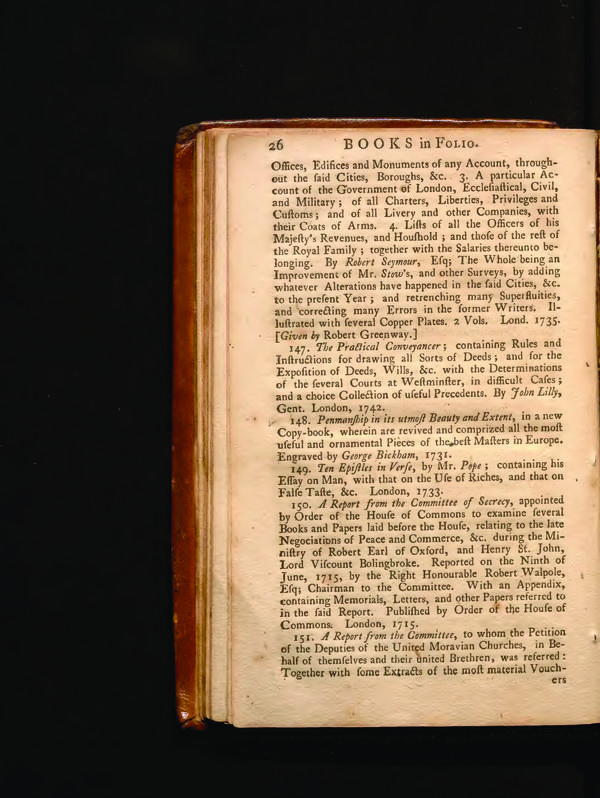 26 BOOKS in FOLIO.
Offices, Edifices and Monuments of any Account, through-
out the ſaid Cities, Boroughs, &c. 3. A particular Ac-
count of the Government of London, Eccleſiaſtical, Civil,
and Military ; of all Charters, Liberties, Privileges and
Cuſtoms ; and of all Livery and other Companies, with
their Coats of Arms. 4. Liſts of all the Officers of his
Majeſty's Revenues, and Houſhold ; and thoſe of the reſt of
the Royal Family ; together with the Salaries thereunto be-
longing. By Robert Seymour, Eſq; The Whole being an
Improvement of Mr. Stow's, and other Surveys, by adding
whatever Alterations have happened in the ſaid Cities, &c.
to the preſent Year ; and retrenching many Superfluities,
and correcting many Errors in the former Writers. Il-
luſtrated with ſeveral Copper Plates. 2 Vols. Lond. 1735.
[Given by Robert Greenway.]
147. The Practical Conveyancer ; containing Rules and
Inſtructions for drawing all Sorts of Deeds ; and for the
Expoſition of Deeds, Wills, &c. with the Determinations
of the ſeveral Courts at Weſtminſter, in difficult Caſes ;
and a choice Collection of uſeful Precedents. By John Lilly,
Gent. London, 1742.
148. Penmanſhip in its utmoſt Beauty and Extent, in a new
Copy-book, wherein are revived and comprized all the moſt
uſeful and ornamental Pièces of the beſt Maſters in Europe.
Engraved by George Bickham, 1731.
149. Ten Epiſtles in Verſe, by Mr. Pope ; containing his
Eſſay on Man, with that on the Uſe of Riches, and that on
Falſe Taſte, &c. London, 1733.
150. A Report from the Committee of Secrecy, appointed
by Order of the Houſe of Commons to examine ſeveral
Books and Papers laid before the Houſe, relating to the late
Negociations of Peace and Commerce, &c. during the Mi-
niſtry of Robert Earl of Oxford, and Henry St. John,
Lord Viſcount Bolingbroke. Reported on the Ninth of
June, 1715, by the Right Honourable Robert Walpole,
Eſq; Chairman to the Committee. With an Appendix,
containing Memorials, Letters, and other Papers referred to
in the ſaid Report. Publiſhed by Order of the Houſe of
Commons. London, 1715.
151. A Report from the Committee, to whom the Petition
of the Deputies of the United Moravian Churches, in Be-
half of themſelves and their united Brethren, was referred :
Together with ſome Extracts of the moſt material Vouch-
ers